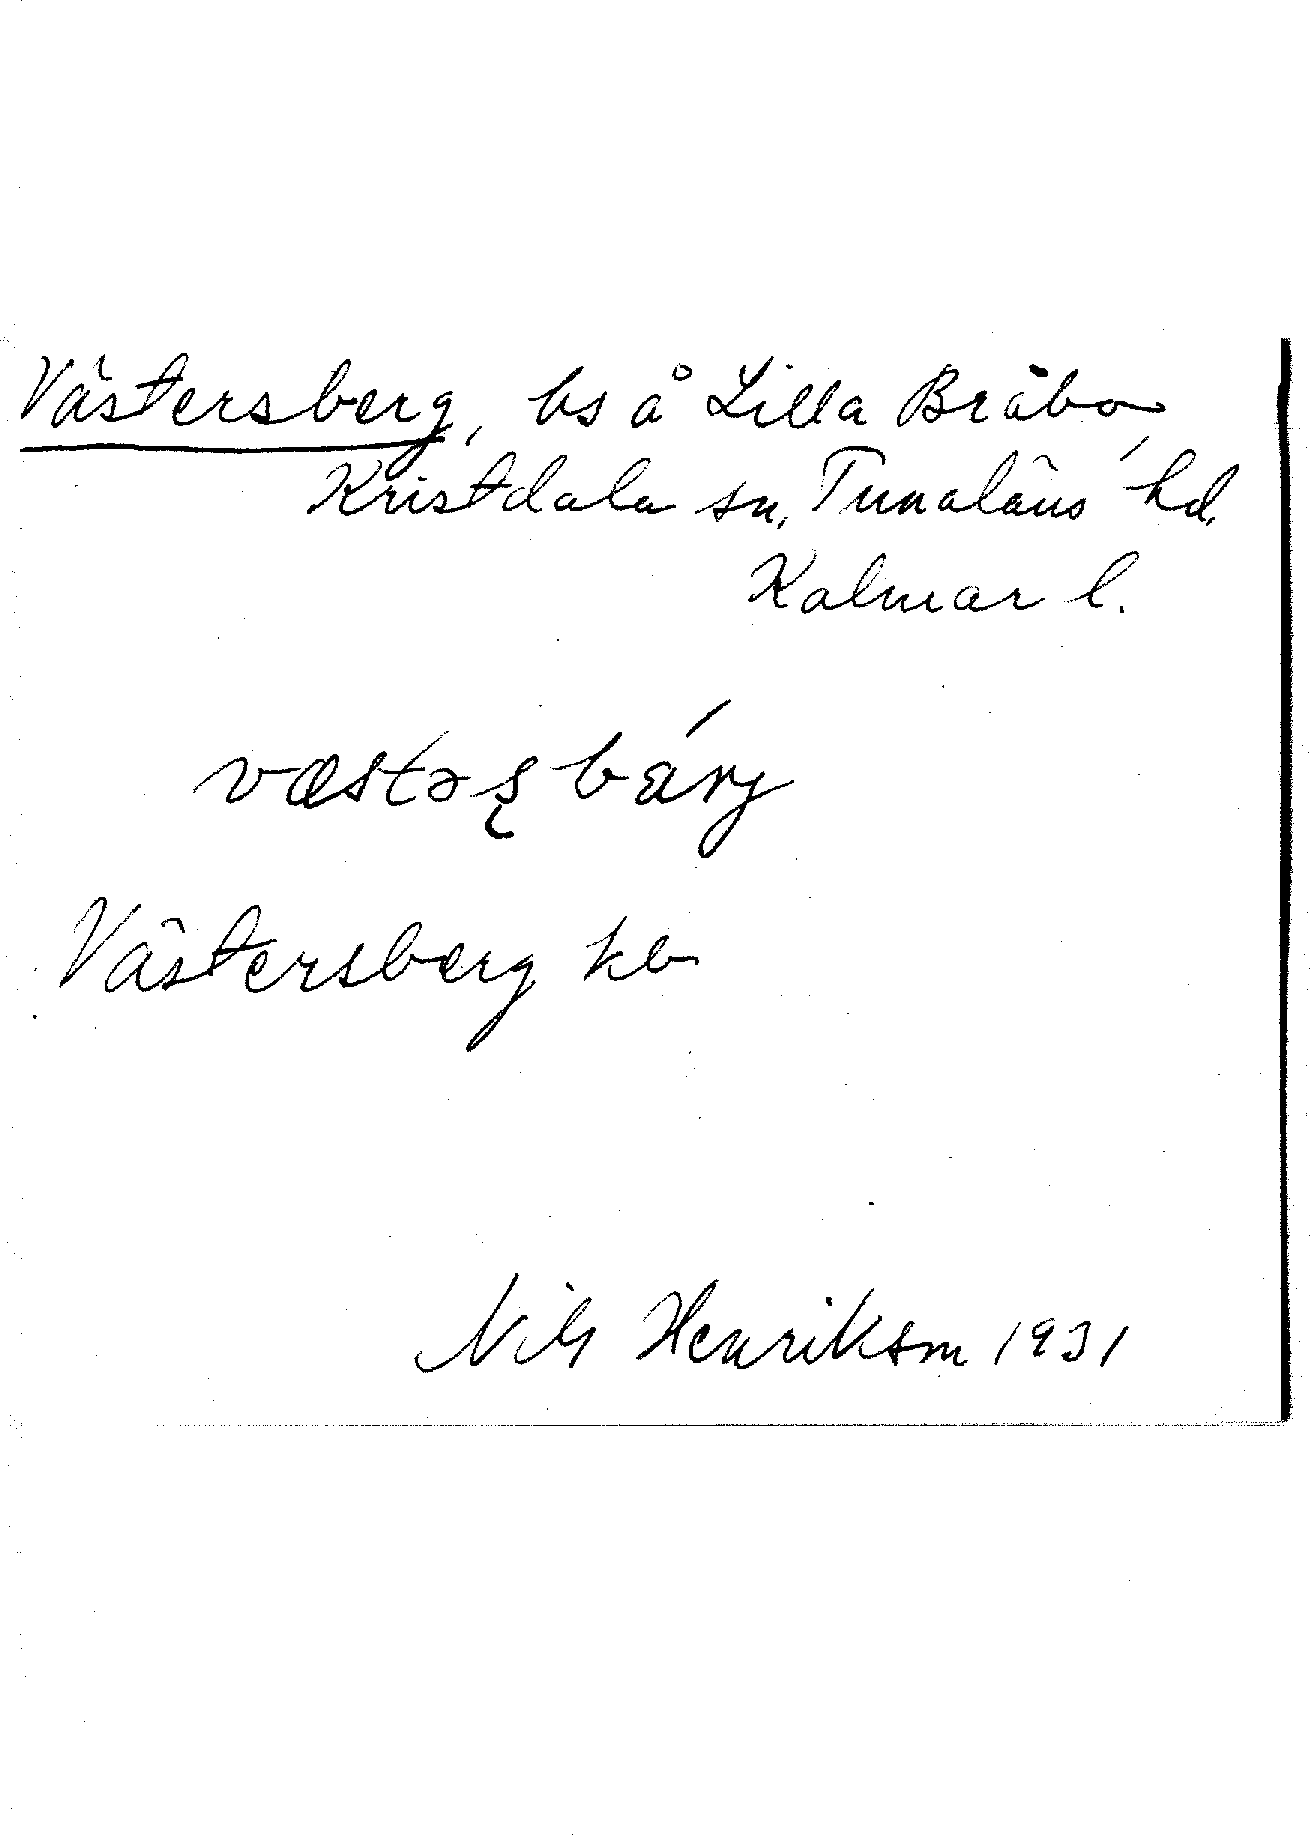 Västersberg, bs å Lilla Bråbo,
Kristdala sn, Tunaläns hd.
Kalmar l.
væstəʂbárj
Västersberg kb
Nils Henrikson 1931